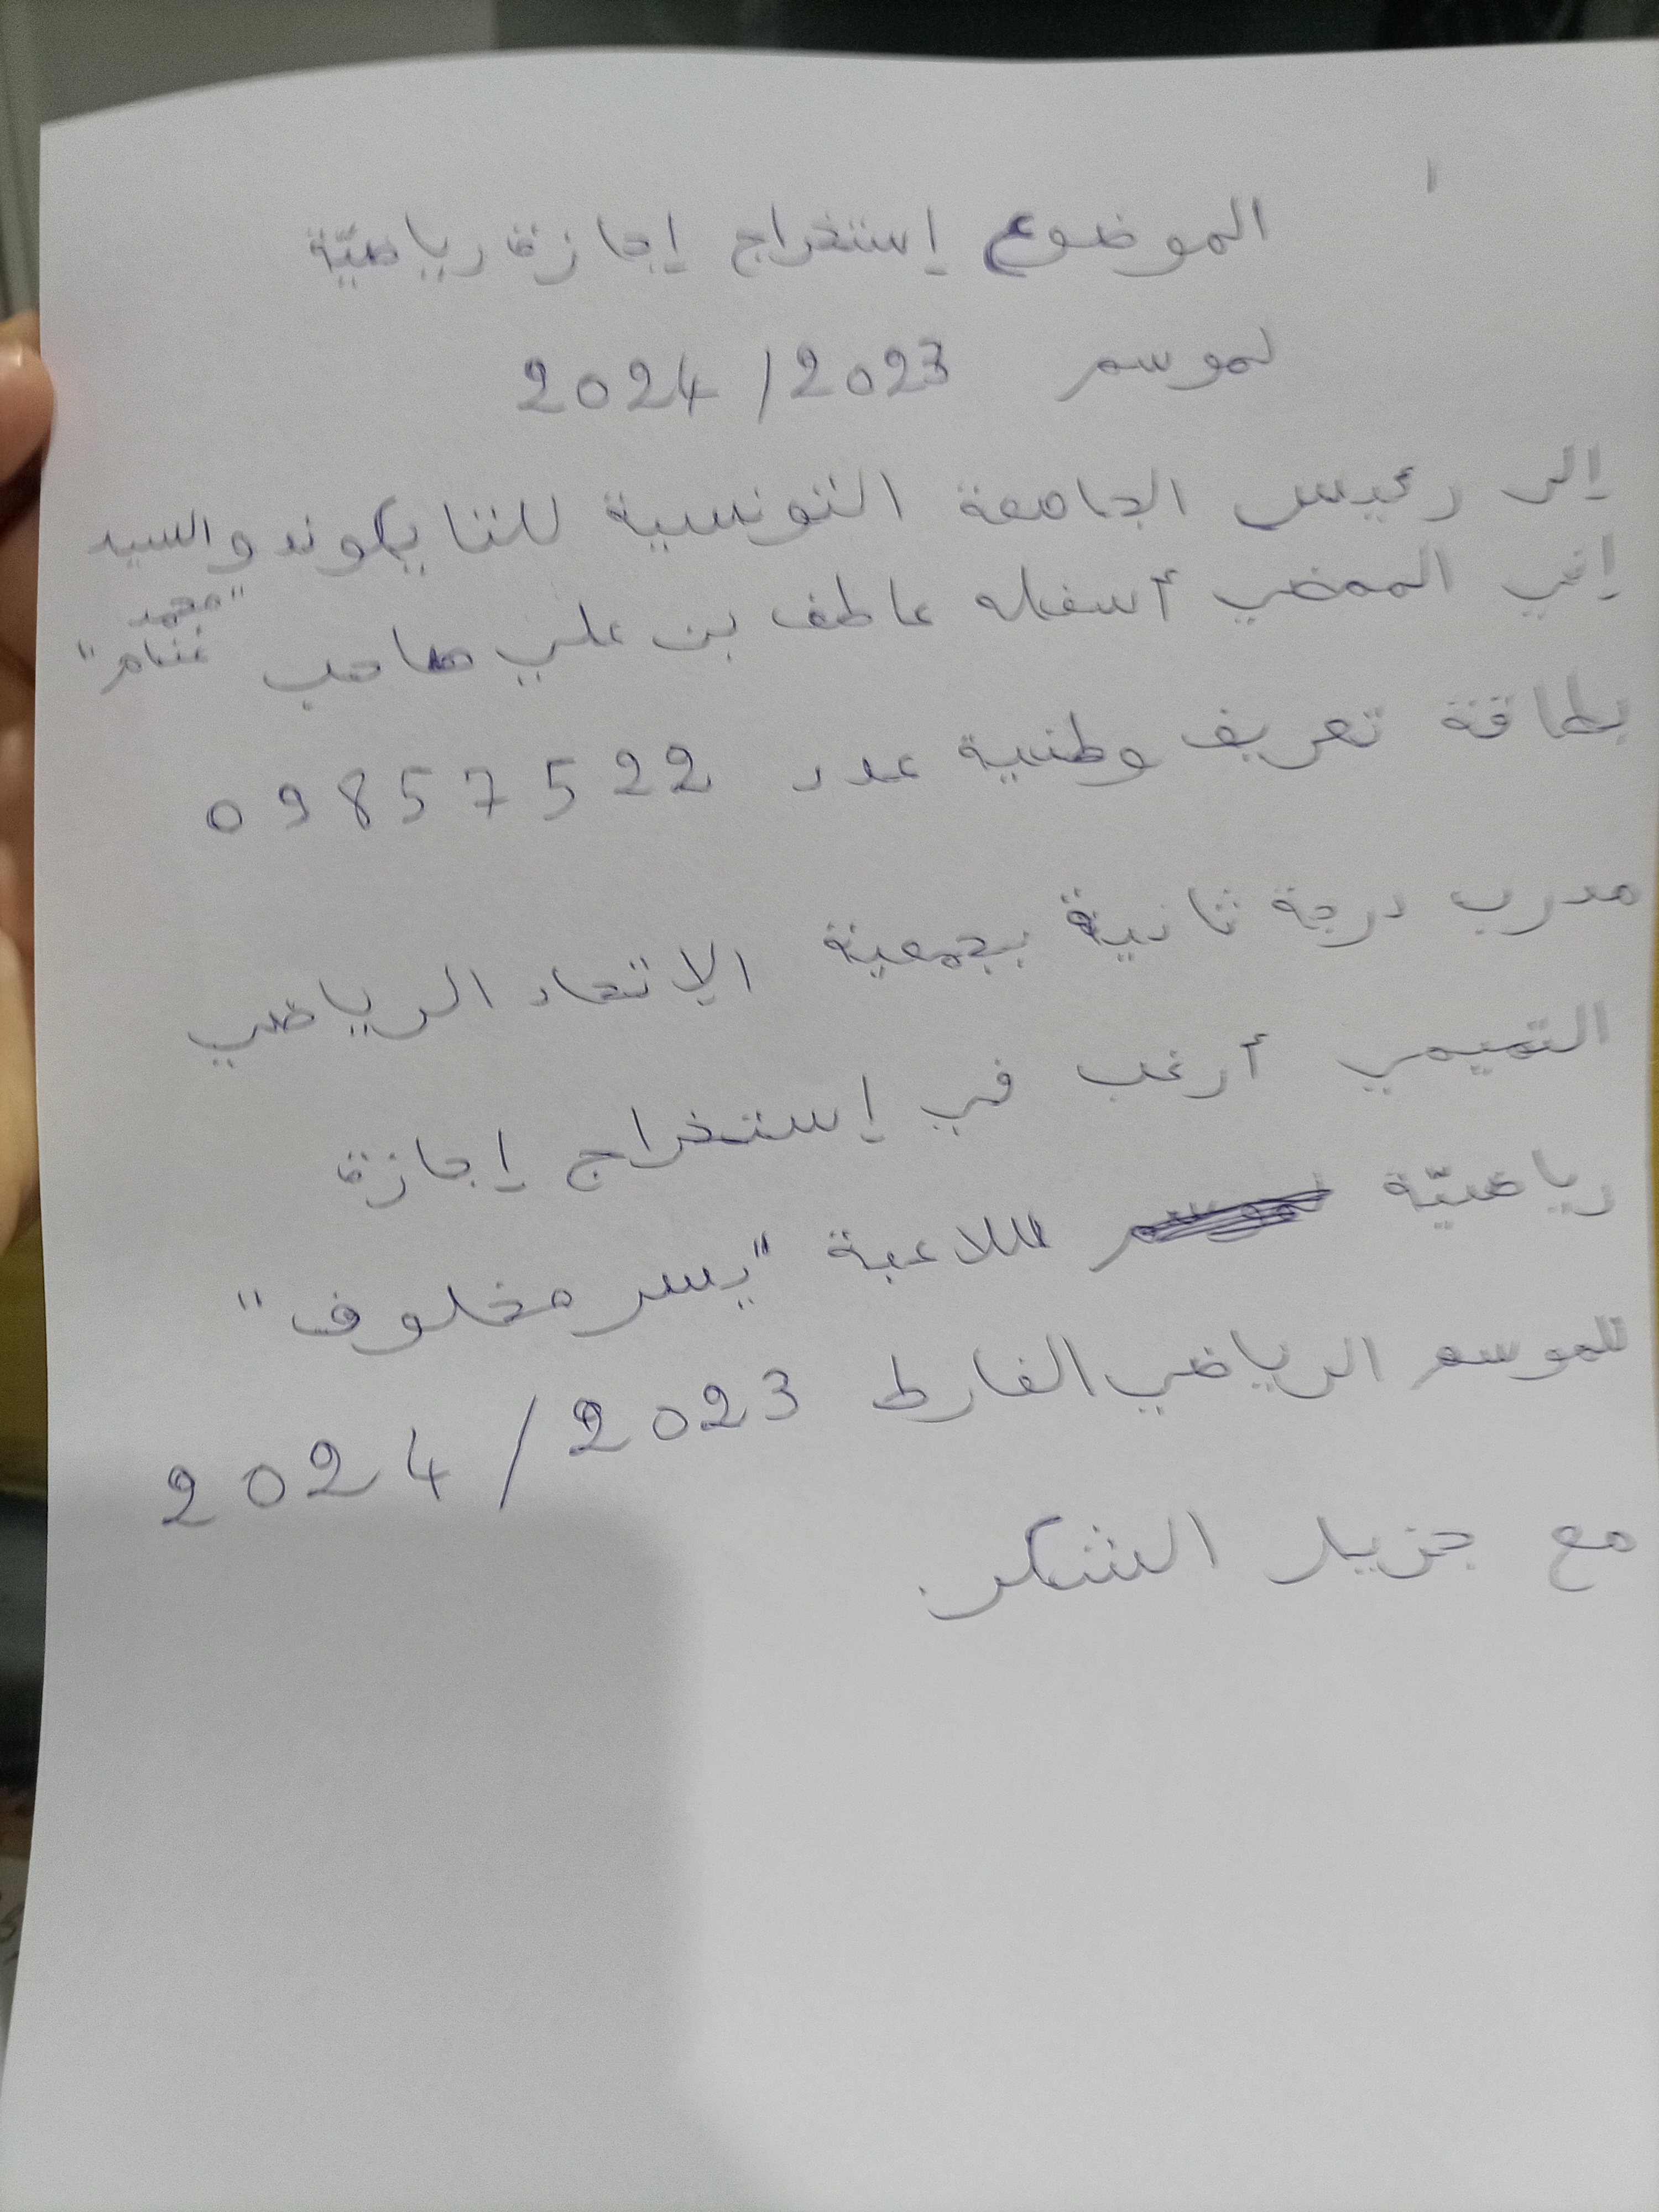 الموضوع إستخراج إجازة رياضيّة
لموسم 2023/2024
إلى رئيس الجامعة التونسية للتايكوندو السيد
"محمد
غنام"
إني الممضي أسفله عاطف بن علي صاحب
بطاقة تعريف وطنية عدد 09857522
مدرب درجة ثانية بجمعية الإتحاد الرياضي
التميمي أرغب في إستخراج إجازة
رياضيّة للاعبة "يسر مخلوف"
للموسم الرياضي الفارط 2023/2024
مع جزيل الشكر.